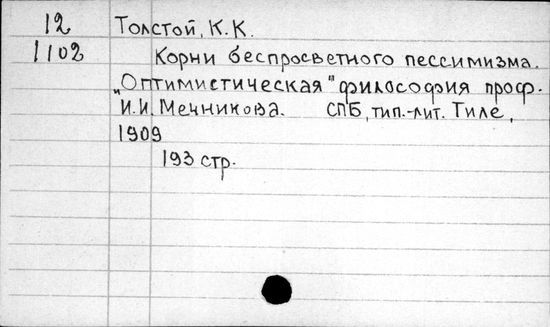 12 Толстой, К.К.
1102 Корни беспросветного пессимизма.
„Оптимистическая" философия проф.
И.И. Мечникова. СПБ, тип.-лит. Тиле,
1909
193 стр.